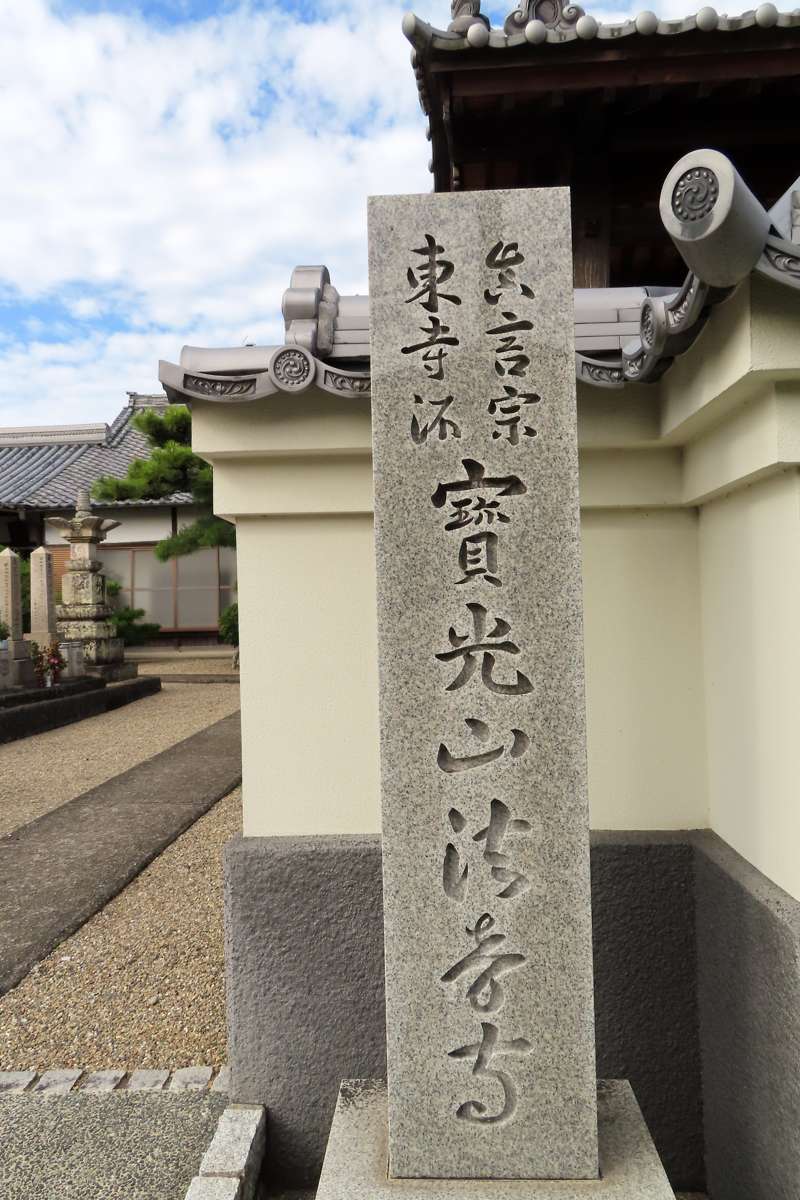 真言宗
東寺派
寶光山法寺